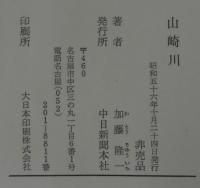 山崎川
昭和五十六年十月二十四日発行
非売品
著者 加藤隆
発行所 中日新聞本社
〒460
名古屋市中区三の丸一丁目6番1号
電話名古屋(052)
201-8811番
印刷所 大日本印刷株式会社